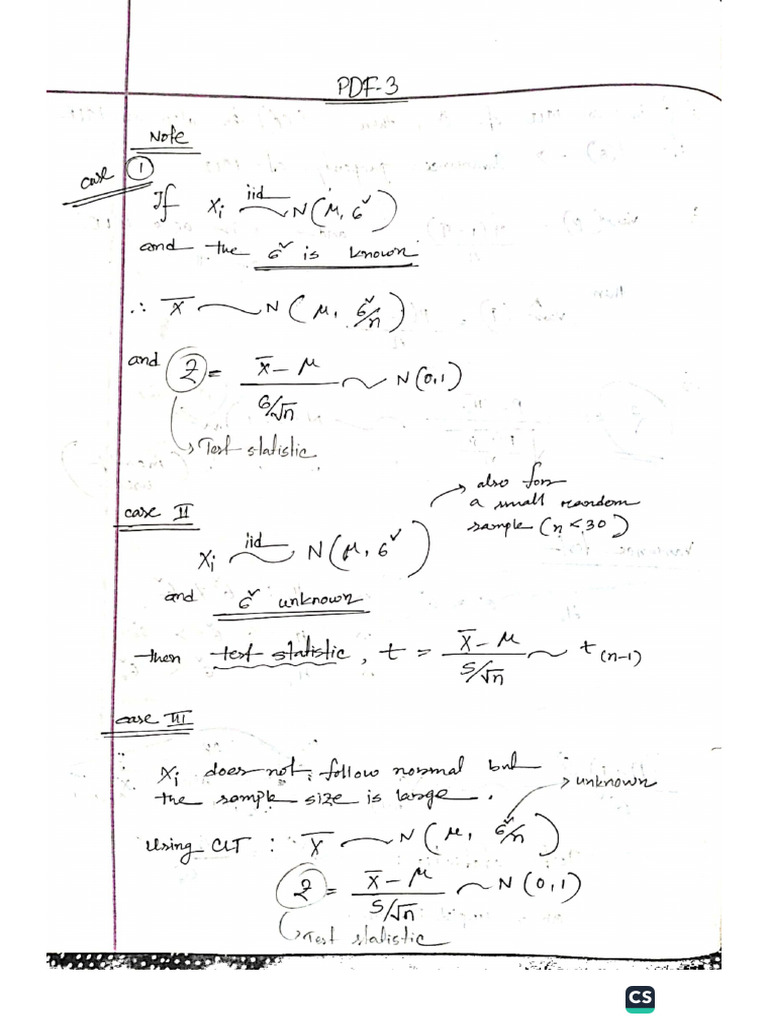 PDF-3
Note
case ①
If Xi iid ~ N(μ, σ²)
and the σ² is known
∴ X̄ ~ N(μ, σ²/n)
and Z = (X̄ - μ) / (σ/√n) ~ N(0,1)
↳ Test statistic
case II
also for
a small random
sample (n < 30)
Xi iid ~ N(μ, σ²)
and σ² unknown
then test statistic, t = (X̄ - μ) / (S/√n) ~ t(n-1)
case III
Xi does not follow normal but
the sample size is large.
→ unknown
Using CLT : X̄ ~ N(μ, σ²/n)
Z = (X̄ - μ) / (S/√n) ~ N(0,1)
↳ Test statistic
CS